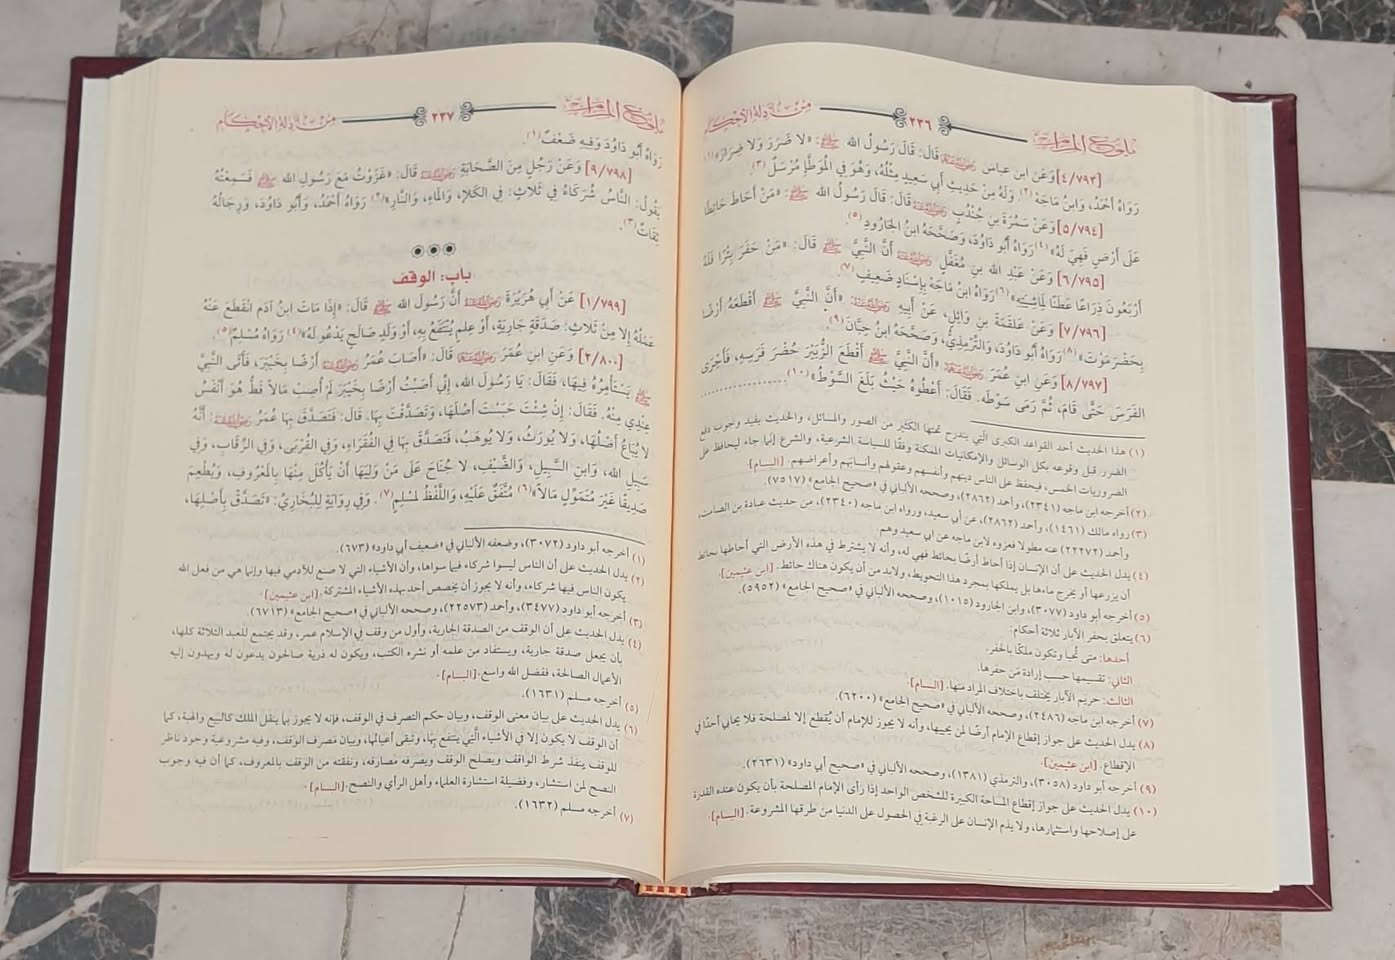 بلوغ المرام
٢٣٦
من أدلة الأحكام
[٤/٧٩٣] وَعَنِ ابنِ عباسٍ رضي الله عنهما قَالَ: قَالَ رَسُولُ الله ﷺ: «لا ضَرَرَ وَلا ضِرَارَ»(١)
رَوَاهُ أَحْمَدُ، وَابنُ مَاجَهْ(٢). وَلَهُ مِنْ حَدِيثِ أَبي سَعِيدٍ مِثْلُهُ، وَهُوَ فِي الْمُوَطَّإِ مُرْسَلٌ(٣).
[٥/٧٩٤] وَعَنْ سَمُرَةَ بنِ جُنْدُبٍ رضي الله عنه قَالَ: قَالَ رَسُولُ الله ﷺ: «مَنْ أَحَاطَ حَائِطًا
عَلَى أَرْضٍ فَهِيَ لَهُ»(٤) رَوَاهُ أَبُو دَاوُدَ، وَصَحَّحَهُ ابنُ الجَارُودِ(٥).
[٦/٧٩٥] وَعَنْ عَبْدِ الله بنِ مُغَفَّلٍ رضي الله عنه أَنَّ النَّبِيَّ ﷺ قَالَ: «مَنْ حَفَرَ بِئْرًا فَلَهُ
أَرْبَعُونَ ذِرَاعًا عَطَنًا لِمَاشِيَتِهِ»(٦) رَوَاهُ ابنُ مَاجَهْ بِإِسْنَادٍ ضَعِيفٍ(٧).
[٧/٧٩٦] وَعَنْ عَلْقَمَةَ بنِ وَائِلٍ، عَنْ أَبِيهِ رضي الله عنه: «أَنَّ النَّبِيَّ ﷺ أَقْطَعَهُ أَرْضًا
بِحَضْرَمَوْتَ»(٨) رَوَاهُ أَبُو دَاوُدَ، وَالتِّرْمِذِيُّ، وَصَحَّحَهُ ابنُ حِبَّانَ(٩).
[٨/٧٩٧] وَعَنِ ابنِ عُمَرَ رضي الله عنهما «أَنَّ النَّبِيَّ ﷺ أَقْطَعَ الزُّبَيْرَ حُضْرَ فَرَسِهِ، فَأَجْرَى
الفَرَسَ حَتَّى قَامَ، ثُمَّ رَمَى سَوْطَهُ. فَقَالَ: أَعْطُوهُ حَيْثُ بَلَغَ السَّوْطُ»(١٠)................
(١) هذا الحديث أحد القواعد الكبرى الَّتي يندرج تحتها الكثير من الصور والمسائل، والحديث يفيد وجوب دفع
الضرر قبل وقوعه بكل الوسائل والإمكانيات الممكنة وفقًا للسياسة الشرعية، والشرع إنما جاء ليحافظ على
الضروريات الخمس، فيحفظ على الناس دينهم وأنفسهم وعقولهم وأنسابهم وأعراضهم. [البسام]
(٢) أخرجه ابن ماجه (٢٣٤١)، وأحمد (٢٨٦٢)، وصححه الألباني في «صحيح الجامع» (٧٥١٧).
(٣) رواه مالك (١٤٦١)، وأحمد (٢٨٦٢)، عن أبي سعيد، ورواه ابن ماجه (٢٣٤٠)، من حديث عبادة بن الصامت،
وأحمد (٢٢٢٧٢) عنه مطولا فعزوه لابن ماجه عن أبي سعيد وهم.
(٤) يدل الحديث على أن الإنسان إذا أحاط أرضًا بحائط فهي له، وأنه لا يشترط في هذه الأرض التي أحاطها بحائط
أن يزرعها أو يخرج ماءها بل يملكها بمجرد هذا التحويط، ولابد من أن يكون هناك حائط. [ابن عثيمين].
(٥) أخرجه أبو داود (٣٠٧٧)، وابن الجارود (١٠١٥)، وصححه الألباني في «صحيح الجامع» (٥٩٥٢).
(٦) يتعلق بحفر الآبار ثلاثة أحكام:
أحدها: متى تُحيا وتكون ملكًا بالحفر.
الثاني: تقسيمها حسب إرادة مَن حفرها.
الثالث: حريم الآبار يختلف باختلاف المراد منها. [البسام].
(٧) أخرجه ابن ماجه (٢٤٨٦)، وصححه الألباني في «صحيح الجامع» (٦٢٠٠).
(٨) يدل الحديث على جواز إقطاع الإمام أرضًا لمن يحييها، وأنه لا يجوز للإمام أن يُقطع إلا لمصلحة فلا يحابي أحدًا في
الإقطاع. [ابن عثيمين].
(٩) أخرجه أبو داود (٣٠٥٨)، والترمذي (١٣٨١)، وصححه الألباني في «صحيح أبي داود» (٢٦٣١).
(١٠) يدل الحديث على جواز إقطاع المساحة الكبيرة للشخص الواحد إذا رأى الإمام المصلحة بأن يكون عنده القدرة
على إصلاحها واستثمارها، ولا يذم الإنسان على الرغبة في الحصول على الدنيا من طرقها المشروعة. [البسام].
بلوغ المرام
٢٣٧
من أدلة الأحكام
رَوَاهُ أَبُو دَاوُدَ وَفِيهِ ضَعْفٌ(١).
[٩/٧٩٨] وَعَنْ رَجُلٍ مِنَ الصَّحَابَةِ رضي الله عنه قَالَ: «غَزَوْتُ مَعَ رَسُولِ الله ﷺ فَسَمِعْتُهُ
يَقُولُ: النَّاسُ شُرَكَاءُ فِي ثَلاثٍ: فِي الكَلَإِ، وَالمَاءِ، وَالنَّارِ»(٢) رَوَاهُ أَحْمَدُ، وَأَبُو دَاوُدَ، وَرِجَالُهُ
ثِقَاتٌ(٣).
باب: الوقف
[١/٧٩٩] عَنْ أَبي هُرَيْرَةَ رضي الله عنه أَنَّ رَسُولَ الله ﷺ قَالَ: «إِذَا مَاتَ ابنُ آدَمَ انْقَطَعَ عَنْهُ
عَمَلُهُ إلا مِنْ ثَلَاثٍ: صَدَقَةٍ جَارِيَةٍ، أَوْ عِلمٍ يُنْتَفَعُ بِهِ، أَوْ وَلَدٍ صَالحٍ يَدْعُو لَهُ»(٤) رَوَاهُ مُسْلِمٌ(٥).
[٢/٨٠٠] وَعَنِ ابنِ عُمَرَ رضي الله عنهما قَالَ: «أَصَابَ عُمَرُ رضي الله عنه أَرْضًا بِخَيْبَرَ، فَأَتَى النَّبِيَّ
ﷺ يَسْتَأْمِرُهُ فِيهَا، فَقَالَ: يَا رَسُولَ الله، إِنِّي أَصَبْتُ أَرْضًا بِخَيْبَرَ لَمْ أُصِبْ مَالاً قَطُّ هُوَ أَنْفَسُ
عِنْدِي مِنْهُ. فَقَالَ: إِنْ شِئْتَ حَبَسْتَ أَصْلَهَا، وَتَصَدَّقْتَ بِهَا. قَالَ: فَتَصَدَّقَ بِهَا عُمَرُ رضي الله عنه: أَنَّهُ
لا يُبَاعُ أَصْلُهَا، وَلا يُورَثُ، وَلا يُوهَبُ، فَتَصَدَّقَ بِهَا فِي الفُقَرَاءِ، وَفِي القُرْبَى، وَفِي الرِّقَابِ، وَفِي
سَبِيلِ الله، وَابنِ السَّبِيلِ، وَالضَّيْفِ، لا جُنَاحَ عَلَى مَنْ وَلِيَهَا أَنْ يَأْكُلَ مِنْهَا بِالمَعْرُوفِ، وَيُطْعِمَ
صَدِيقًا غَيْرَ مُتَمَوِّلٍ مَالاً»(٦) مُتَّفَقٌ عَلَيْهِ، وَاللَّفْظُ لمسْلِمٍ(٧). وَفِي رِوَايَةٍ لِلْبُخَارِيِّ: «تَصَدَّقْ بِأَصْلِهَا،
(١) أخرجه أبو داود (٣٠٧٢)، وضعفه الألباني في «ضعيف أبي داود» (٦٧٣).
(٢) يدل الحديث على أن الناس ليسوا شركاء فيما سواها، وأن الأشياء التي لا صنع للآدمي فيها وإنما هي من فعل الله
يكون الناس فيها شركاء، وأنه لا يجوز أن يخصص أحد بهذه الأشياء المشتركة. [ابن عثيمين]
(٣) أخرجه أبو داود (٣٤٧٧)، وأحمد (٢٢٥٧٣)، وصححه الألباني في «صحيح الجامع» (٦٧١٣).
(٤) يدل الحديث على أن الوقف من الصدقة الجارية، وأول من وقف في الإسلام عمر، وقد يجتمع للعبد الثلاثة كلها،
بأن يجعل صدقة جارية، ويستفاد من علمه أو نشره الكتب، ويكون له ذرية صالحون يدعون له ويهدون إليه
الأعمال الصالحة، ففضل الله واسع. [البسام].
(٥) أخرجه مسلم (١٦٣١).
(٦) يدل الحديث على بيان معنى الوقف، وبيان حكم التصرف في الوقف، فإنه لا يجوز بما ينقل الملك كالبيع والهبة، كما
أن الوقف لا يكون إلا في الأشياء الَّتي ينتفع بها، وتبقى أعيانها، وبيان مصرف الوقف، وفيه مشروعية وجود ناظر
للوقف ينفذ شرط الواقف ويصلح الوقف ويصرفه مصارفه، ونفقته من الوقف بالمعروف، كما أن فيه وجوب
النصح لمن استشار، وفضيلة استشارة العلماء وأهل الرأي والنصح. [البسام].
(٧) أخرجه مسلم (١٦٣٢).